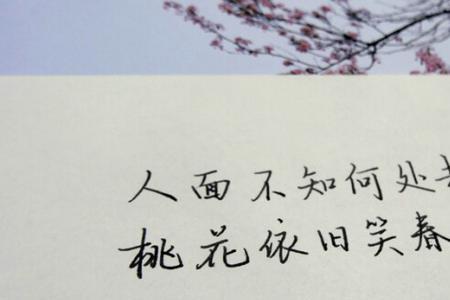 人面不知何处去
桃花依旧笑春